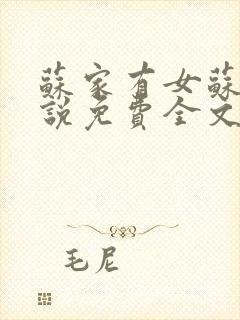 蘇家有女蘇
說免費全文
毛尼